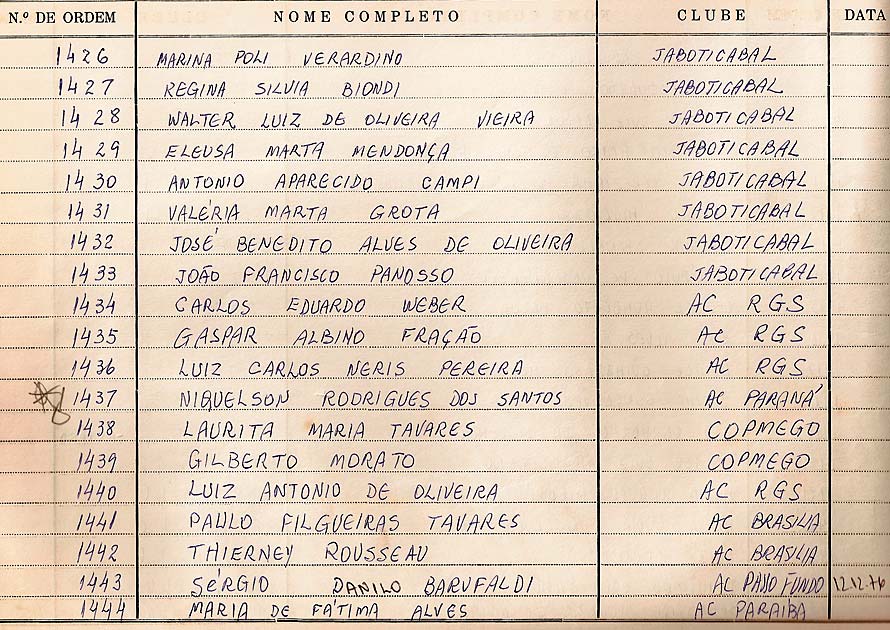 N.º DE ORDEM NOME COMPLETO CLUBE DATA
1426 MARINA POLI VERARDINO JABOTICABAL
1427 REGINA SILVIA BIONDI JABOTICABAL
1428 WALTER LUIZ DE OLIVEIRA VIEIRA JABOTICABAL
1429 ELEUSA MARTA MENDONÇA JABOTICABAL
1430 ANTONIO APARECIDO CAMPI JABOTICABAL
1431 VALÉRIA MARTA GROTA JABOTICABAL
1432 JOSÉ BENEDITO ALVES DE OLIVEIRA JABOTICABAL
1433 JOÃO FRANCISCO PANOSSO JABOTICABAL
1434 CARLOS EDUARDO WEBER AC RGS
1435 GASPAR ALBINO FRAÇÃO AC RGS
1436 LUIZ CARLOS NERIS PEREIRA AC RGS
1437 NIQUELSON RODRIGUES DOS SANTOS AC PARANÁ
1438 LAURITA MARIA TAVARES COPMEGO
1439 GILBERTO MORATO COPMEGO
1440 LUIZ ANTONIO DE OLIVEIRA AC RGS
1441 PAULO FILGUEIRAS TAVARES AC BRASILIA
1442 THIERNEY ROUSSEAU AC BRASILIA
1443 SÉRGIO DANILO BARUFALDI AC PASSO FUNDO 12.12.76
1444 MARIA DE FÁTIMA ALVES AC PARAIBA